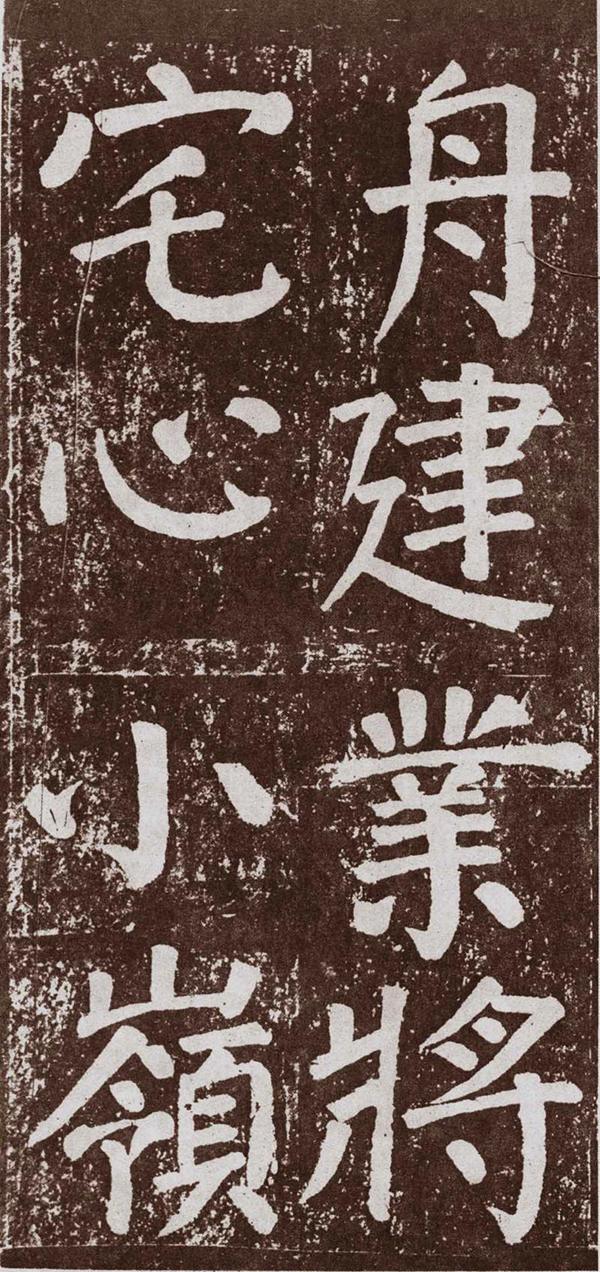 丹建業將
宅心小嶺